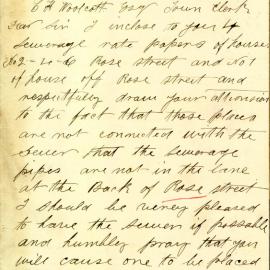 E H Woolcott Esq Town Clerk
Dear Sir I inclose to you 4
Sewerage rate papers of houses
No 2-20-6 Rose street and No1
of house off Rose street and
respectfully draw your attension
to the fact that those places
are not connected with the
sewer that the sewerage
pipes are not in the lane
at the Back of Rose street
I should be verey pleased
to have the sewer if possable
and humbley pray that you
will cause one to be placed